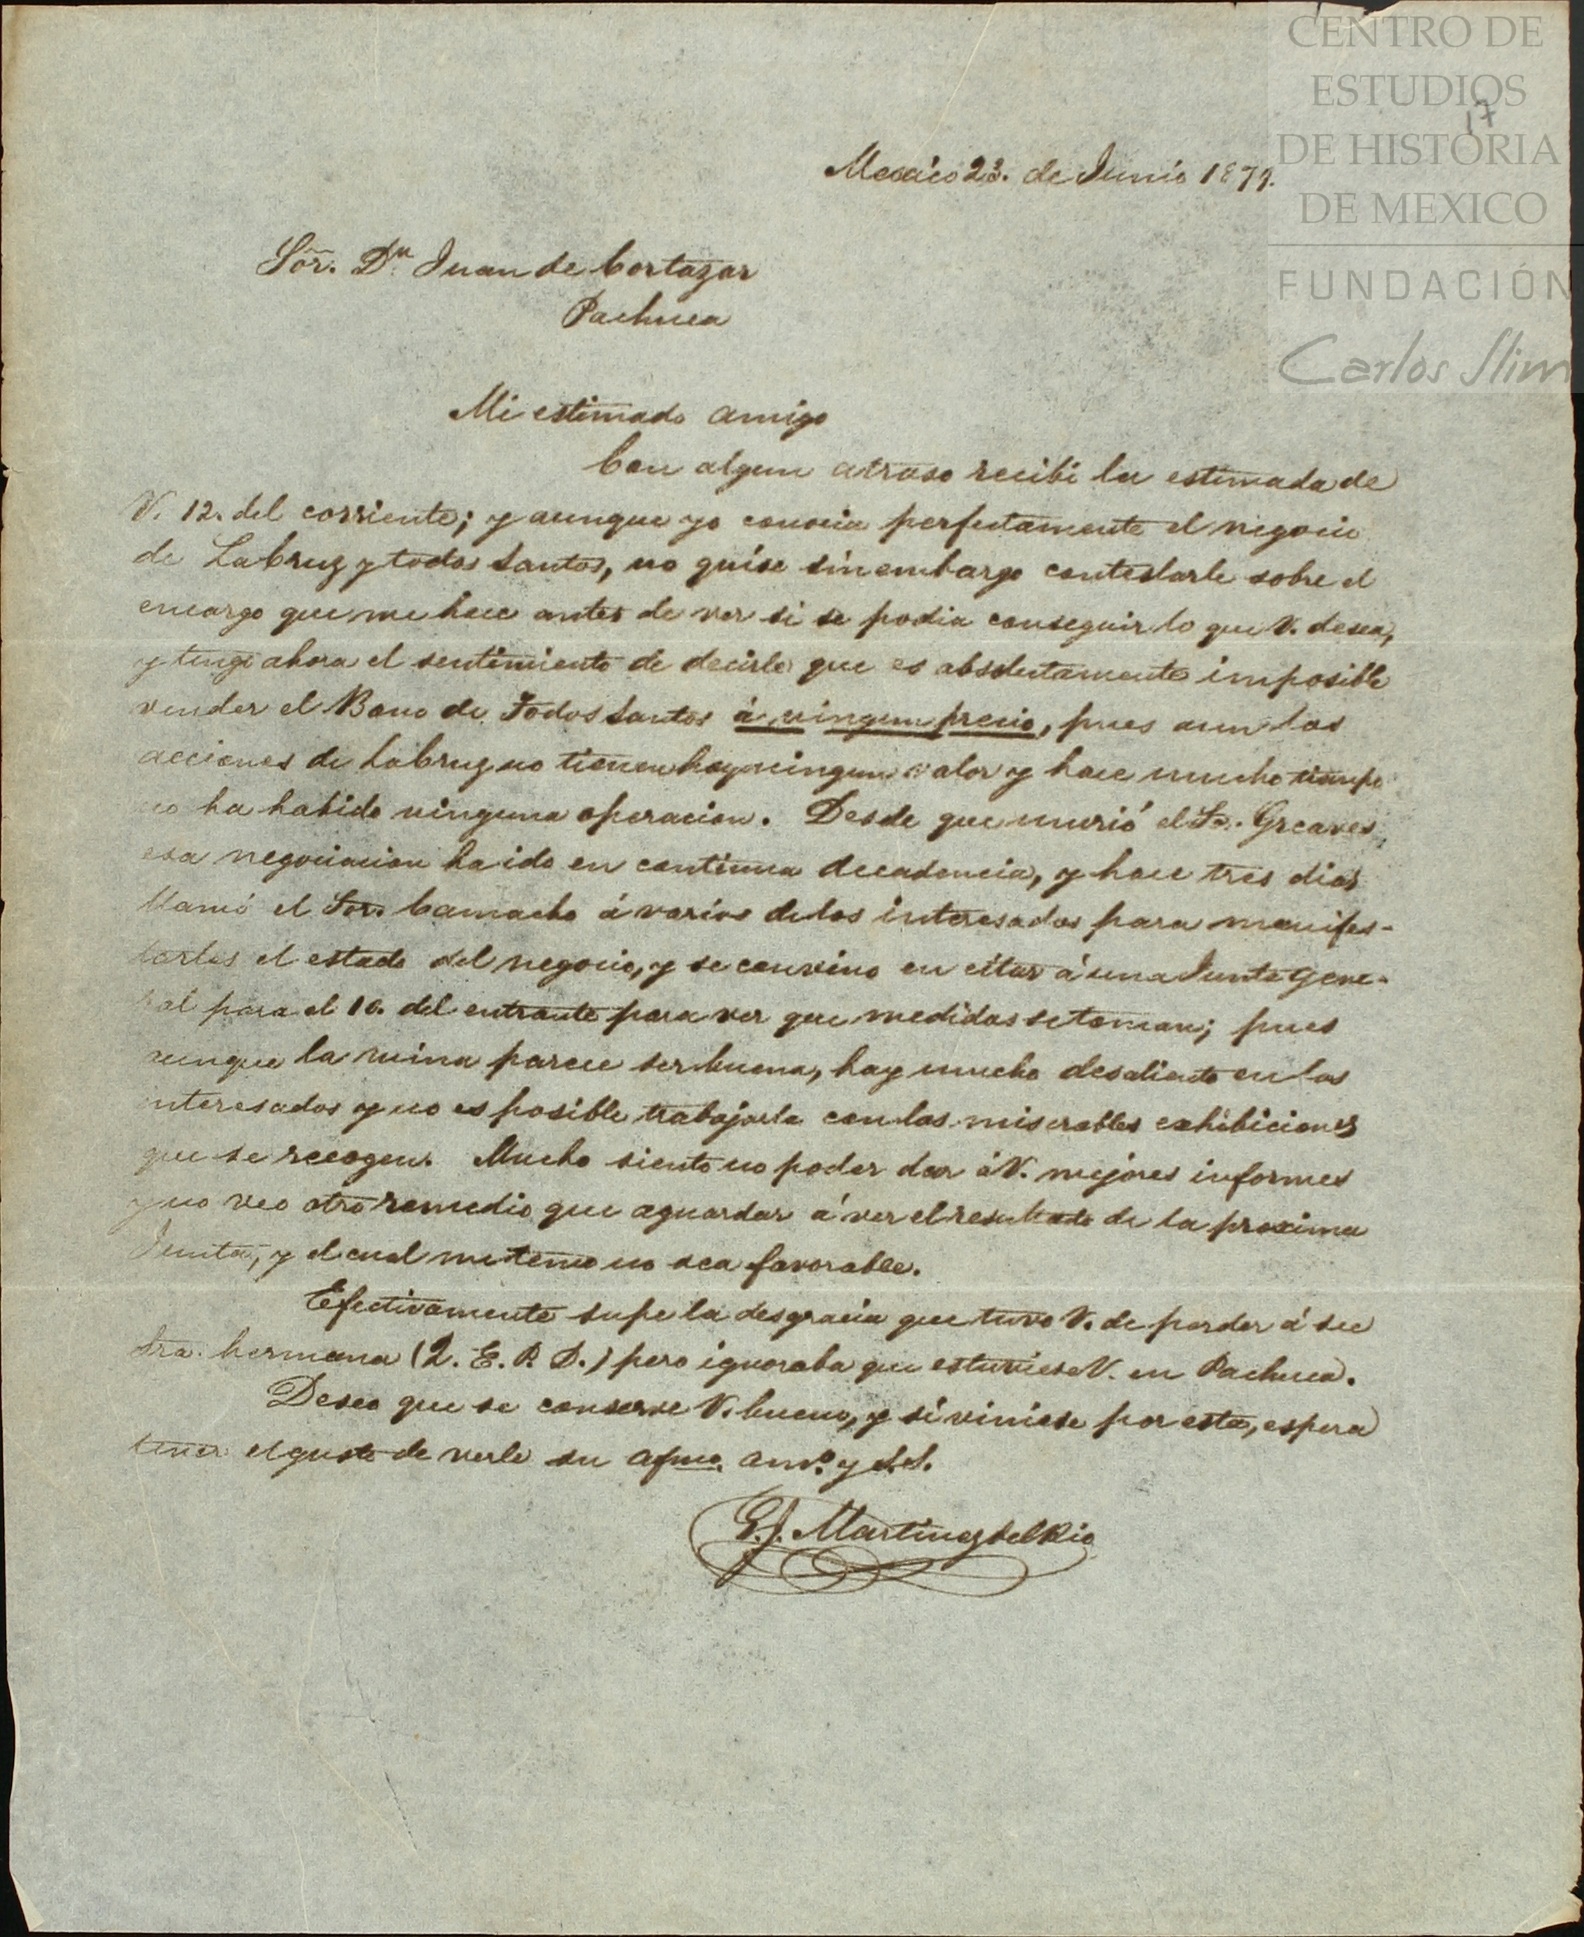 CENTRO DE
ESTUDIOS
17
DE HISTORIA
DE MEXICO
FUNDACIÓN
Carlos Slim
Mexico 23. de Junio 1879.
Sor. Dn. Juan de Cortazar
Pachuca
Mi estimado amigo
Con algun atraso recibi la estimada de
V. 12. del corriente; y aunque yo conocia perfectamente el negocio
de La Cruz y todos Santos, no quise sin embargo contestarle sobre el
encargo que me hace antes de ver si se podia conseguir lo que V. desea,
y tengo ahora el sentimiento de decirle que es absolutamente imposible
vender el Bono de Todos Santos á ningun precio, pues aun las
acciones de La Cruz no tienen hoy ningun valor y hace mucho tiempo
no ha habido ninguna operacion. Desde que murió el Sr. Greaves,
esa negociacion ha ido en continua decadencia, y hace tres dias
llamó el Sor. Camacho á varios de los interesados para manifes-
tarles el estado del negocio, y se convino en citar á una Junta gene-
ral para el 10. del entrante para ver que medidas se toman; pues
aunque la mina parece ser buena, hay mucho desaliento en los
interesados y no es posible trabajarla con las miserables exhibiciones
que se recogen. Mucho siento no poder dar á V. mejores informes
y no veo otro remedio que aguardar á ver el resultado de la proxima
Junta, y el cual me temo no sea favorable.
Efectivamente supe la desgracia que tuvo V. de perder á su
Sra. hermana (Q. E. P. D.) pero ignoraba que estuviese V. en Pachuca.
Deseo que se conserve V. bueno, y si viniese por esta, espera
tener el gusto de verle su afmo. amo. y S.S.
G. J. Martinez del Rio